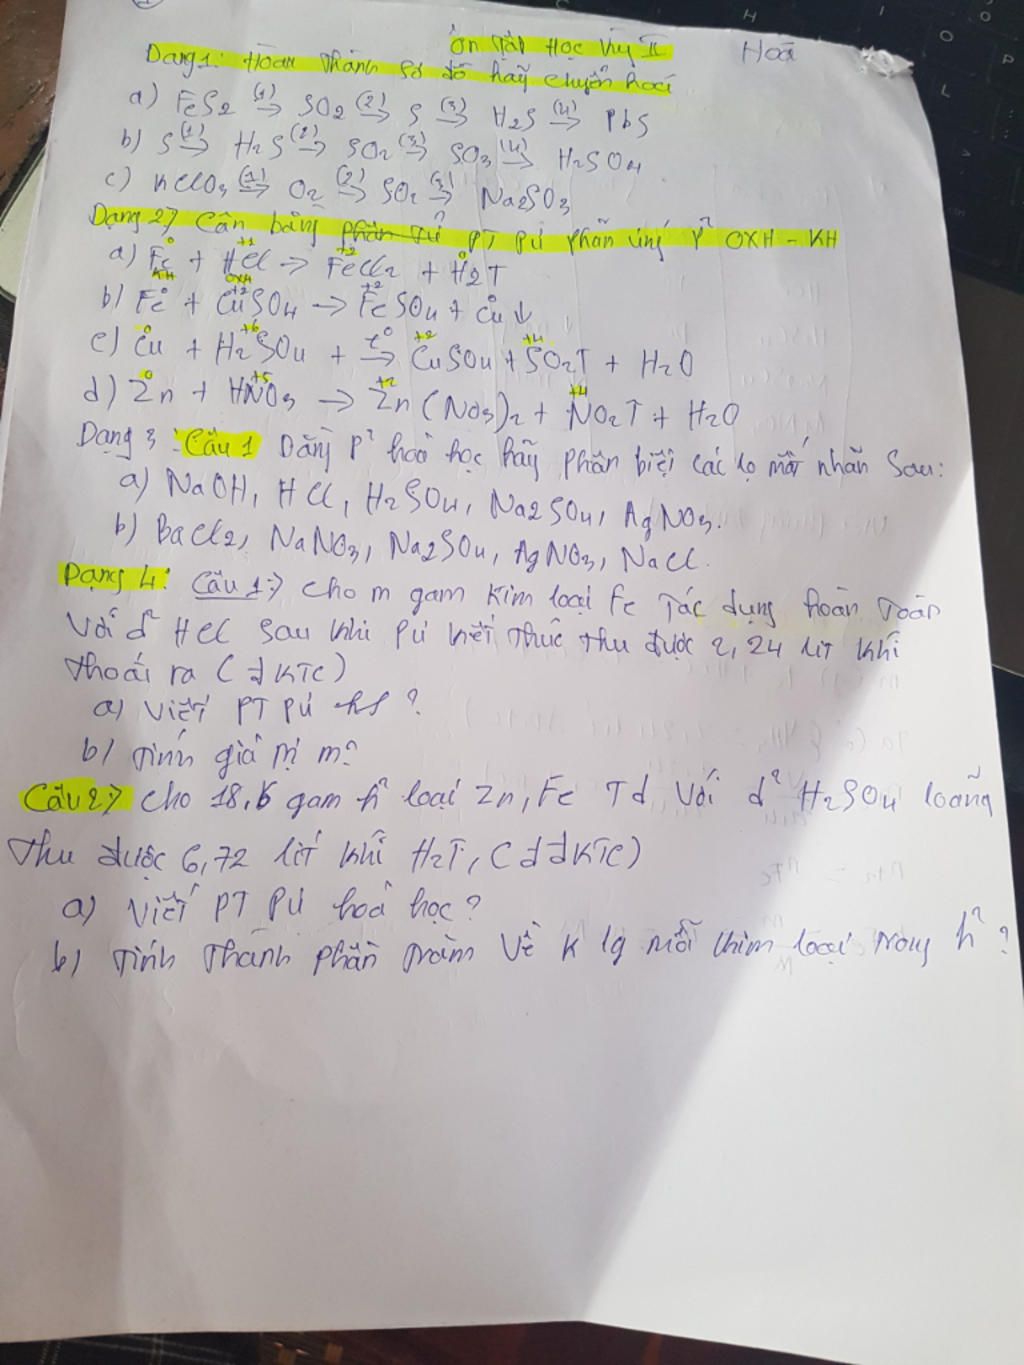 Ôn Tập Học Kỳ II Hoá
Dạng 1: Hoàn Thành Sơ đồ hãy chuyển hoá
a) FeS2 (1)→ SO2 (2)→ S (3)→ H2S (4)→ PbS
b) S (1)→ H2S (2)→ SO2 (3)→ SO3 (4)→ H2SO4
c) KClO3 (1)→ O2 (2)→ SO2 (3)→ Na2SO3
Dạng 2) Cân bằng phân tử PT Pứ phản ứng P² OXH - KH
0 +1 +2 0
a) Fe + HCl → FeCl2 + H2↑
KH OXH
b) Fe⁰ + Cu⁺²SO4 → Fe⁺²SO4 + Cu⁰ ↓
0 +6 t⁰ +2 +4
c) Cu + H2SO4 + → CuSO4 + SO2↑ + H2O
0 +5 +2 +4
d) Zn + HNO3 → Zn(NO3)2 + NO2↑ + H2O
Dạng 3: Câu 1 Dằng P² hoá học hãy phân biệt các lọ mất nhãn Sau:
a) NaOH, HCl, H2SO4, Na2SO4, AgNO3.
b) BaCl2, NaNO3, Na2SO4, AgNO3, NaCl.
Dạng 4: Câu 1:) Cho m gam Kim loại Fe Tác dụng hoàn Toàn
Với d² HCl Sau khi Pứ kết thúc thu được 2,24 lít khí
thoát ra (đKTC)
a) Viết PT Pứ hh?
b) Tính giá Trị m?
Câu 2) Cho 18,6 gam h² loại Zn, Fe Td Với d² H2SO4 loãng
Thu được 6,72 lít khí H2↑, (đđKTC)
a) Viết PT Pứ hoá học?
b) Tính Thành phần Trăm Về K lg mỗi kim loại trong h²?